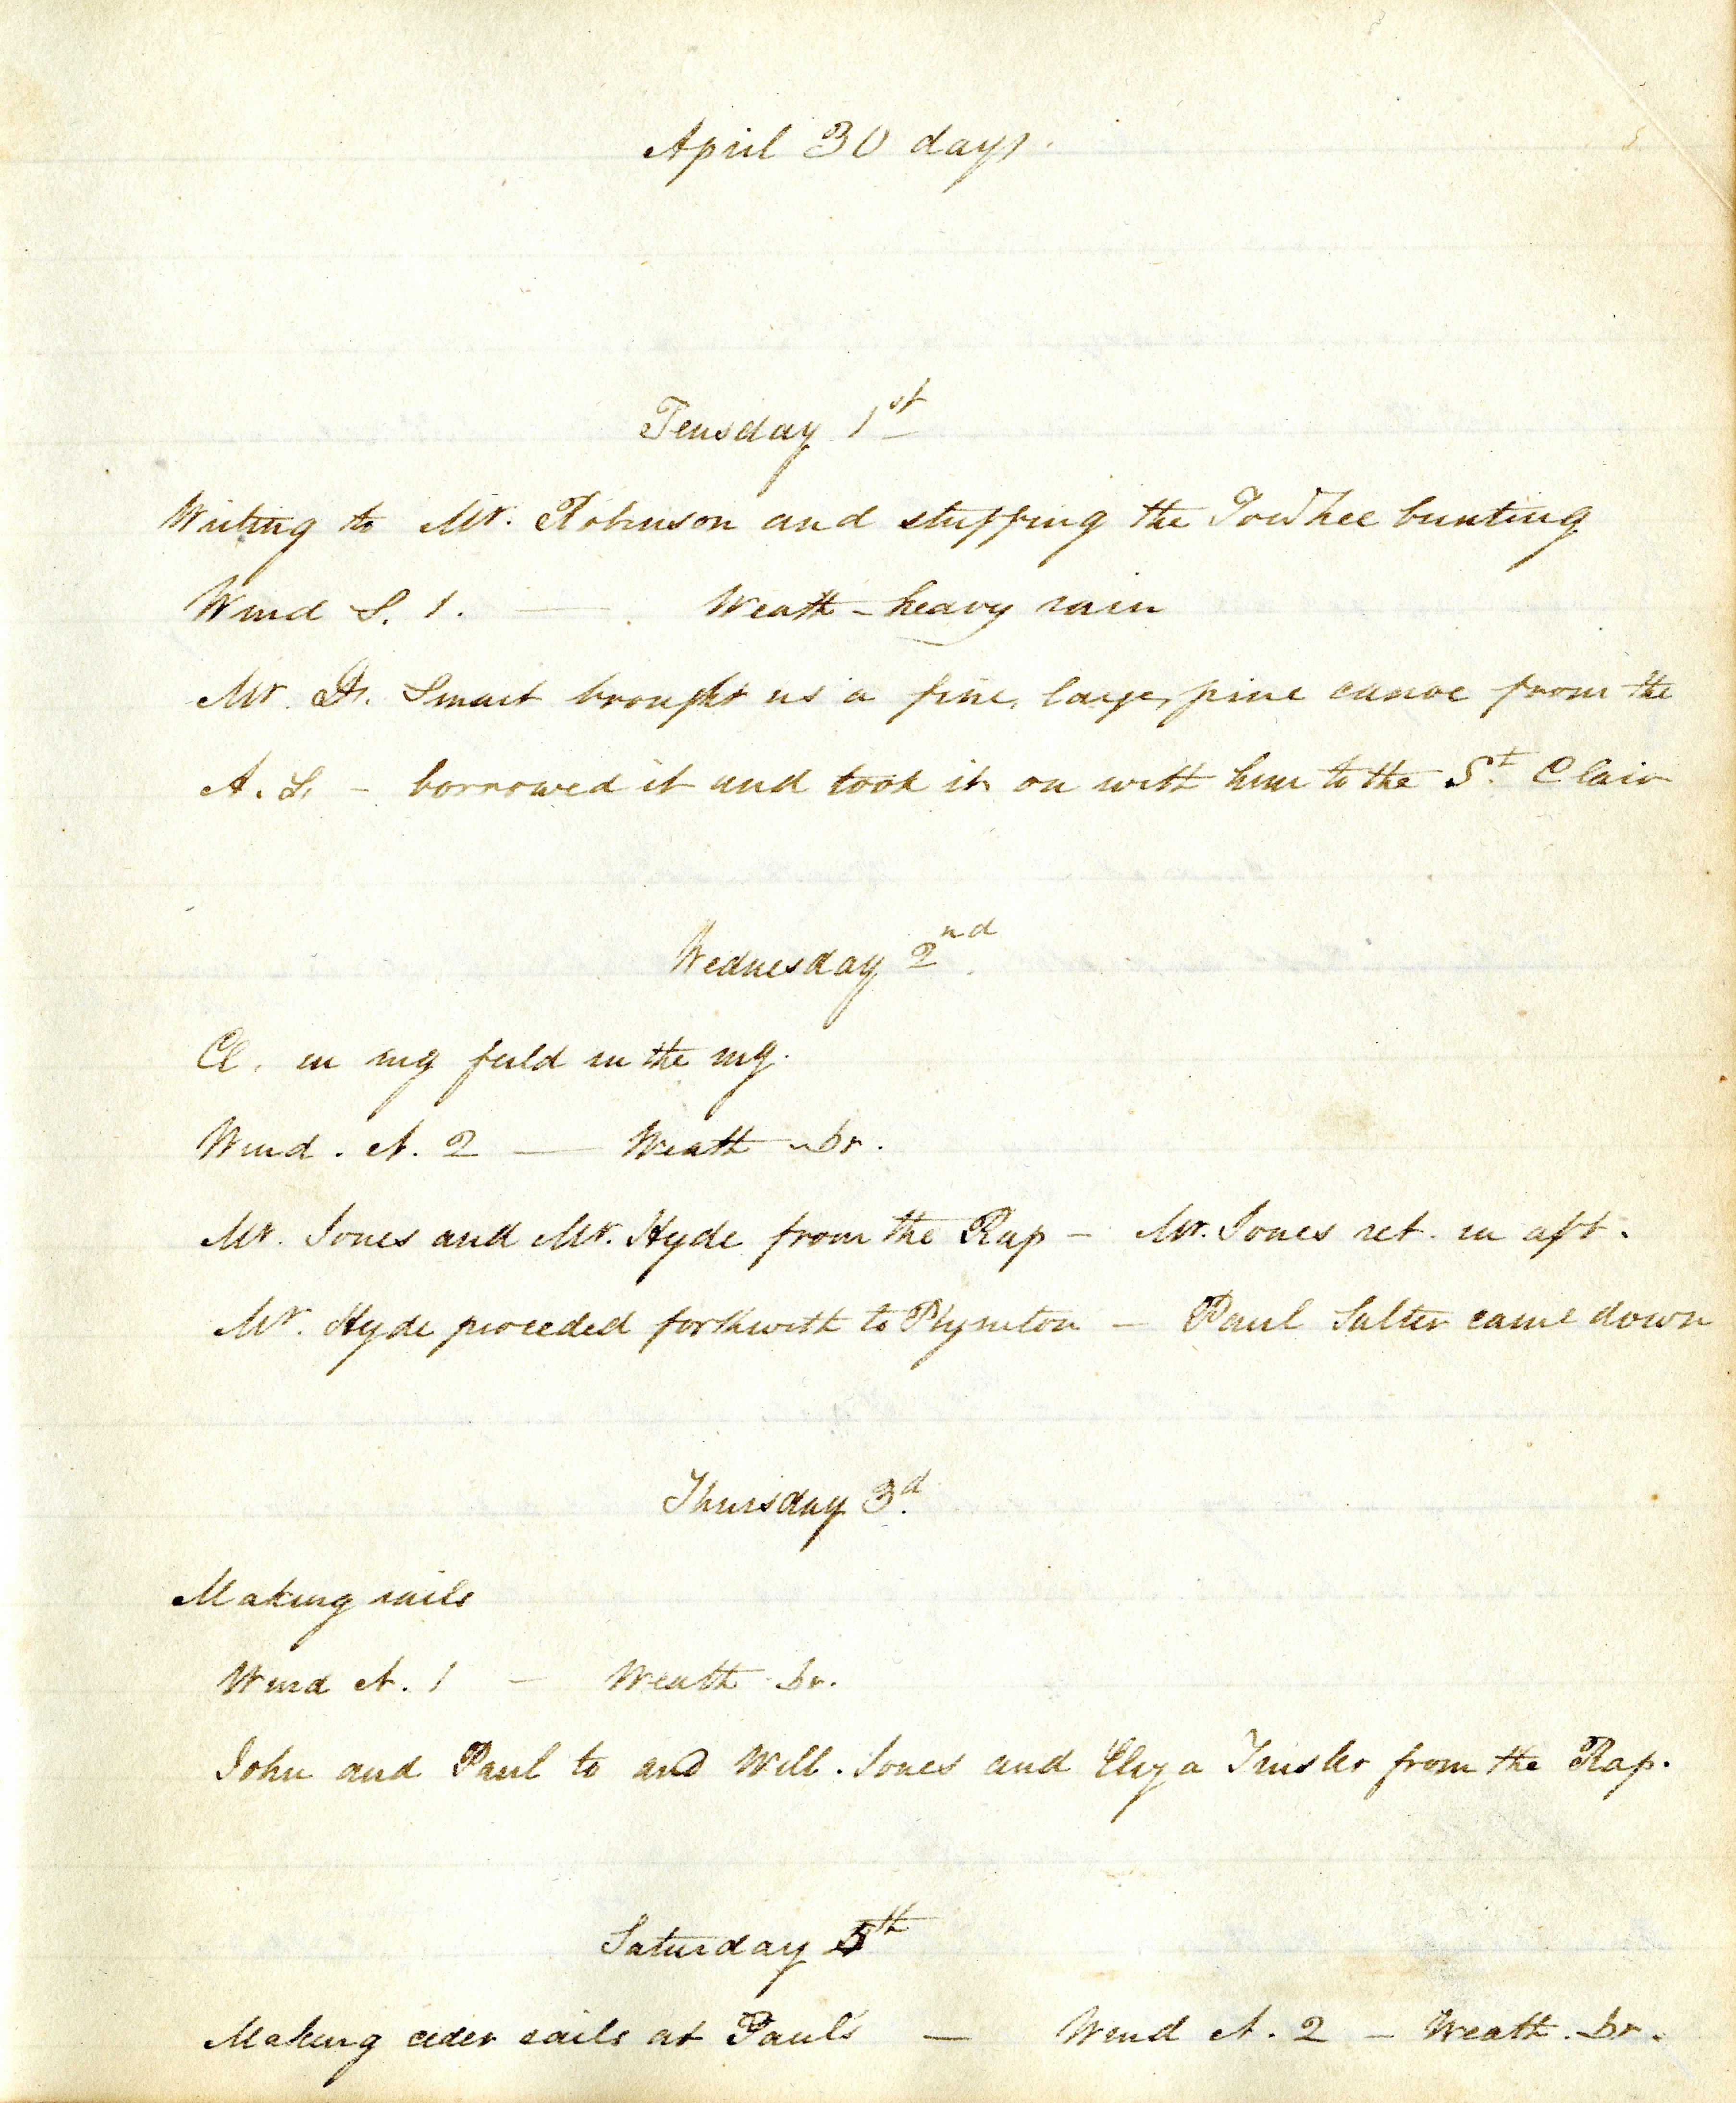 April 30 days.
Teusday 1st
Writing to Mr. Robinson and stuffing the TowThee bunting
Wind S. 1. — Weath - heavy rain
Mr. Smart brought us a fine, large, pine canoe from the
A. S. - borrowed it and took it on with him to the St. Clair
Wednesday 2nd
Cl. in my feild in the mg.
Wind. N. 2 — Weath - br.
Mr. Jones and Mr. Hyde from the Rap - Mr. Jones ret. in aft.
Mr. Hyde proceded forthwith to Plymton - Paul Salter came down
Thursday 3d.
Making rails
Wind N. 1 - Weath - br.
John and Paul to and Will. Jones and from the Rap.
Saturday 5th
Making ceder rails at Pauls — Wind N. 2 - Weath. br.